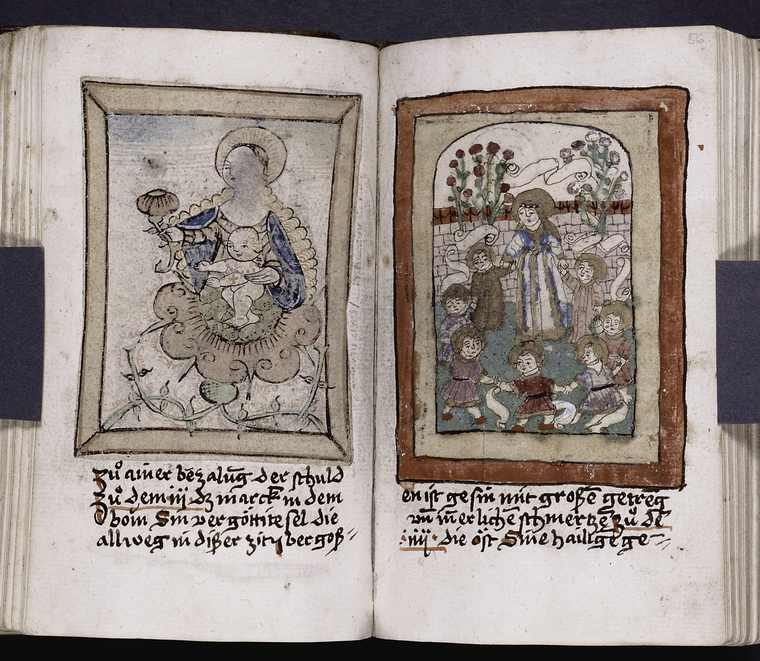 56
zů ainer bezalūg der schuld
zů dem iij dz marck in dem
boim Sin vergöttite sel die
allweg in dißer zitt vergoß-
en ist gesin mit großē getreg
vn̄ in̄erlichē schmertzē zů dē
·iiij· die öst Sine hailige ge-